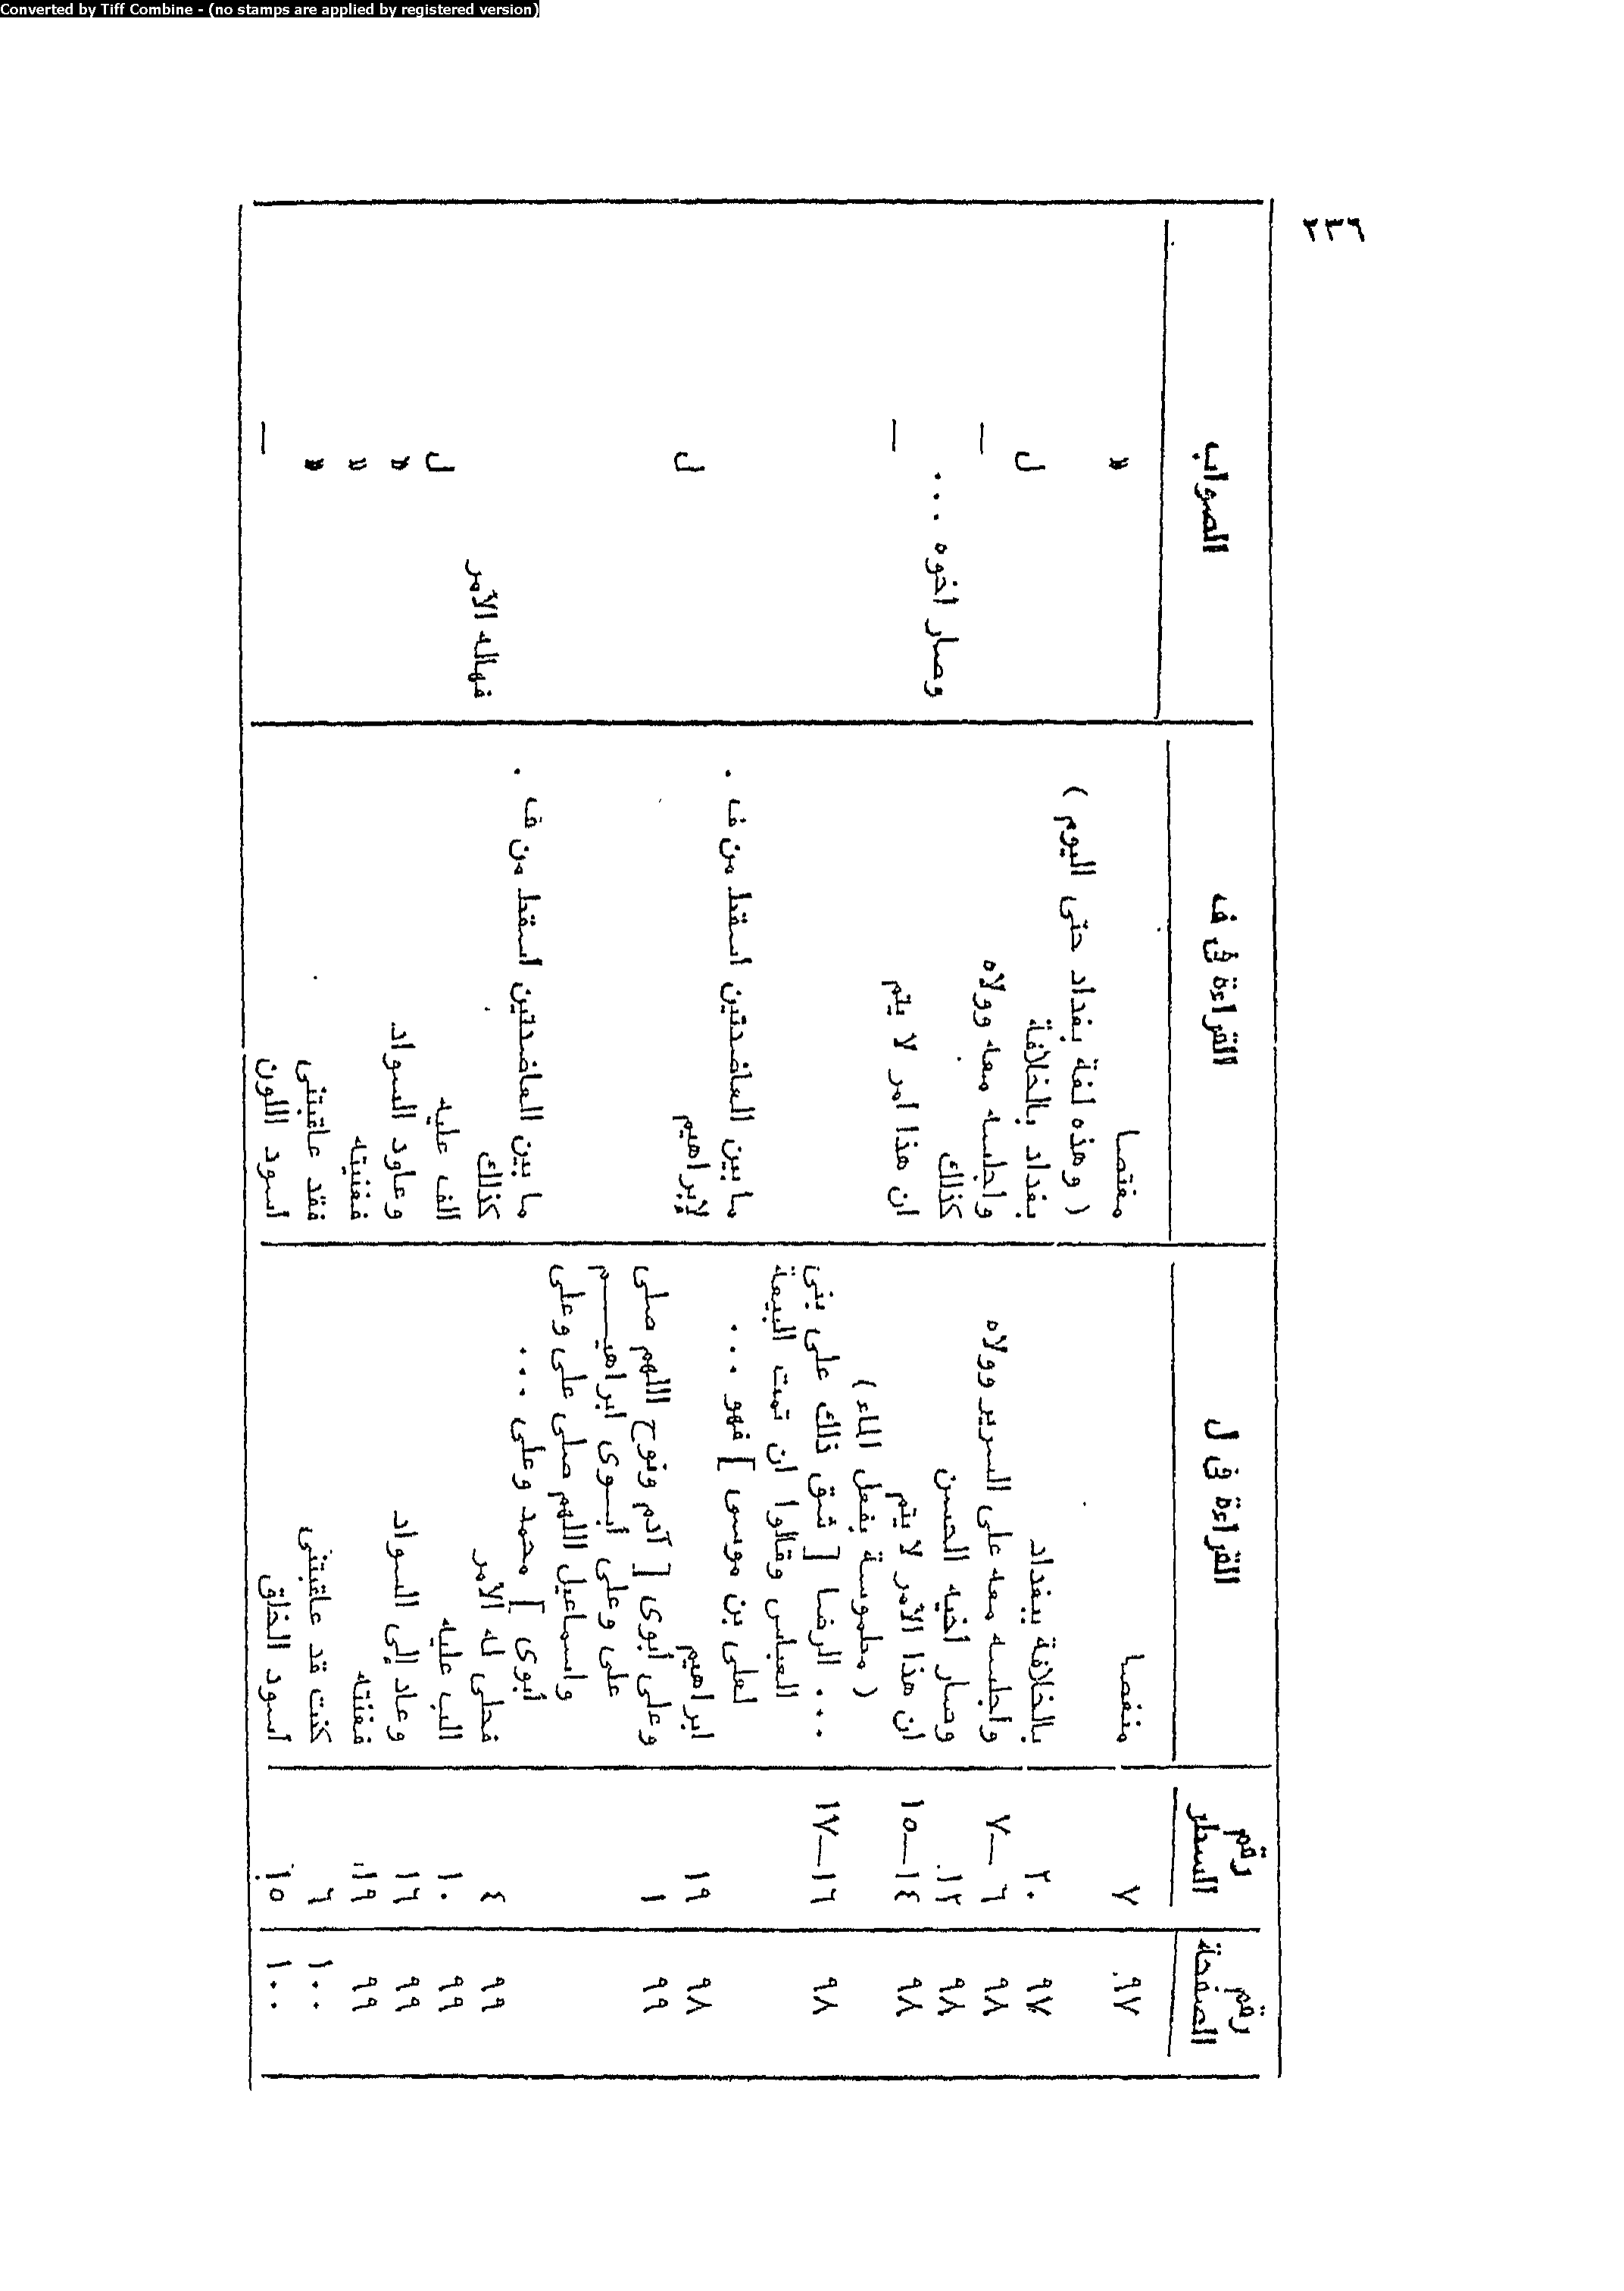 Converted by Tiff Combine - (no stamps are applied by registered version)
٢٣٦
رقم الصفحة | رقم السطر | القراءة في ل | القراءة في ف | الصواب
٩٧ | ٧ | منغصا | مغتصا | »
( وهذه لغة بغداد حتى اليوم )
٩٧ | ٢٠ | بالخلافة ببغداد | بغداد بالخلافة | ل
٩٨ | ٦—٧ | واجلسه معه على السرير وولاه | واجلسه معه وولاه | —
٩٨ | ١٢ | وصار اخيه الحسن | كذلك | وصار اخوه ...
٩٨ | ١٤—١٥ | ان هذا الأمر لا يتم | ان هذا امر لا يتم | —
( مطموسة بفعل الماء )
٩٨ | ١٦—١٧ | ... الرضا [ شق ذلك على بنى
العباس وقالوا ان تمت البيعة
لعلى بن موسى ] فهو ... | ما بين العاضدتين اسقط من ف .
٩٨ | ١٩ | ابراهيم | لإبراهيم | ل
٩٩ | ١ | وعلى أبوى [ آدم ونوح اللهم صلى
على وعلى أبوى ابراهيم
واسماعيل اللهم صلى على وعلى
أبوى ] محمد وعلى ... | ما بين العاضدتين اسقط من ف .
٩٩ | ٤ | فحلى له الأمر | كذلك | فهاله الأمر
٩٩ | ١٠ | الب عليه | الف عليه | ل
٩٩ | ١٦ | وعاد إلى السواد | وعاود السواد | »
٩٩ | ١٩ | فغنته | فغنيته | »
١٠٠ | ٦ | كنت قد عاقبتنى | فقد عاقبتنى | »
١٠٠ | ١٥ | اسود الخلق | اسود اللون | —